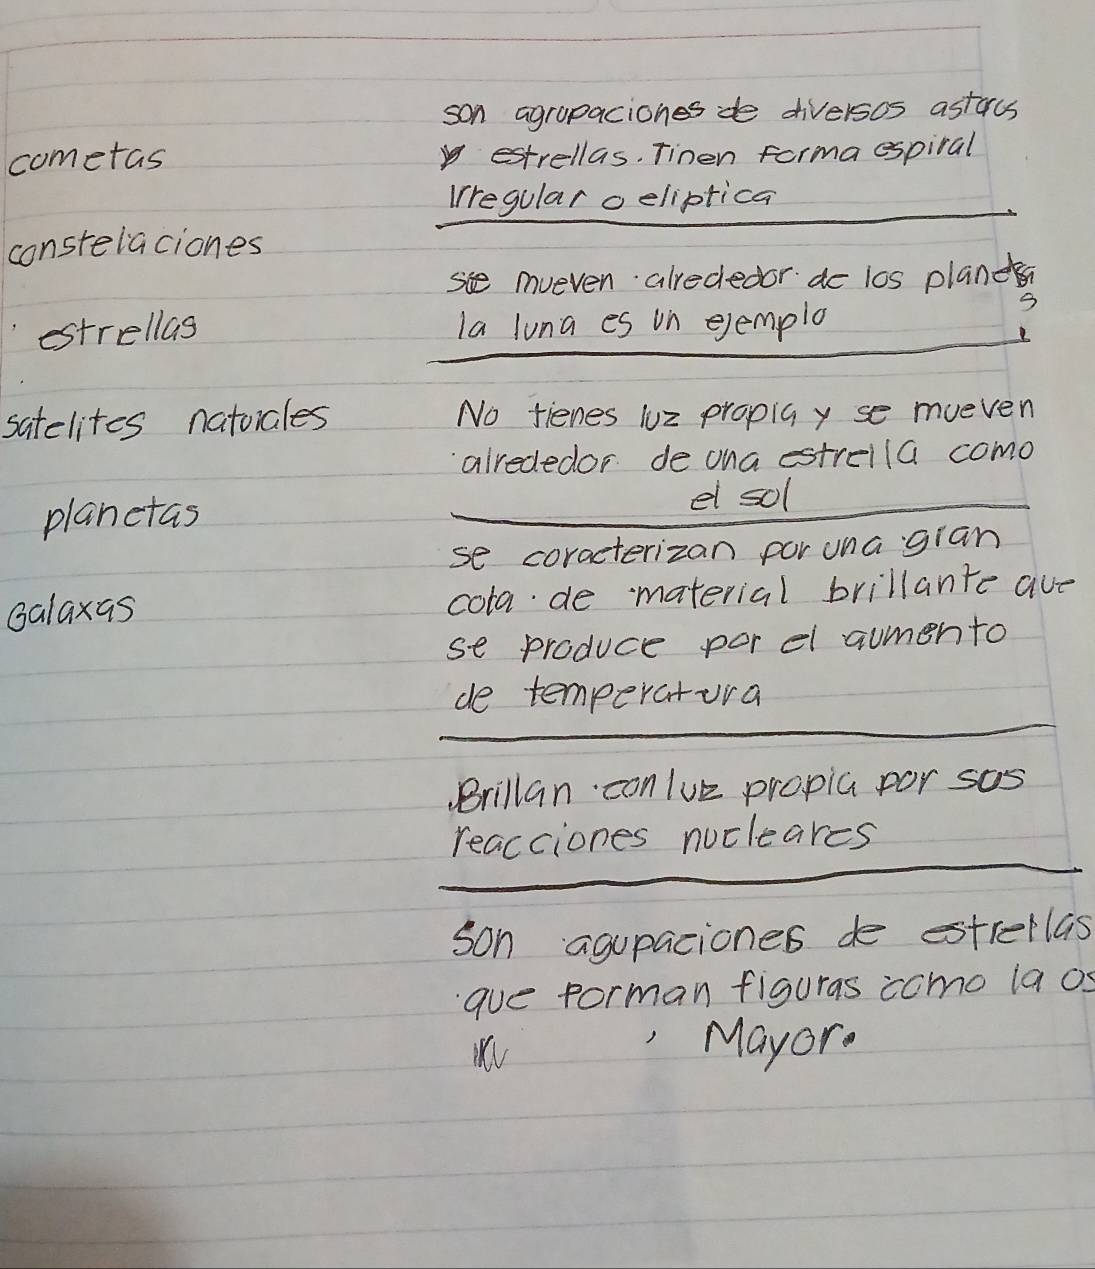 son agrupaciones de diversos astros
cometas
y estrellas. Tinen forma espiral
Irregular o eliptica
constelaciones
se mueven alrededor de los planetas
estrellas
la luna es un ejemplo
satelites naturales
No tienes luz propia y se mueven
alrededor de una estrella como
planetas
el sol
se coracterizan por una gran
Galaxas
cola de material brillante que
se produce por el aumento
de temperatura
Brillan con luz propia por sus
reacciones nucleares
Son agupaciones de estrellas
que forman figuras como la os
Mayor.